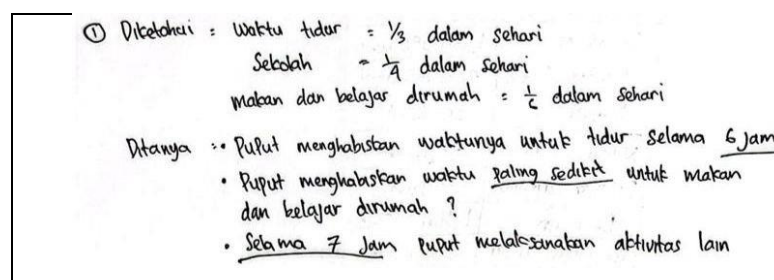 ① Diketahui : Waktu tidur = 1/3 dalam sehari
Sekolah = 1/4 dalam sehari
makan dan belajar dirumah = 1/6 dalam sehari
Ditanya : • Puput menghabiskan waktunya untuk tidur selama 6 Jam
• Puput menghabiskan waktu paling sedikit untuk makan
dan belajar dirumah ?
• Selama 7 Jam puput melaksanakan aktivitas lain